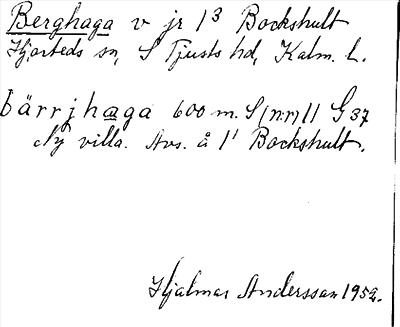 Berghaga v jr 1³ Bockshult
Hjorteds sn, S Tjusts hd, Kalm. l.
bärrjhaga 600 m. S (n:r) 11 G 37
Ny villa. Avs. å 1¹ Bockshult.
Hjalmar Andersson 1952.